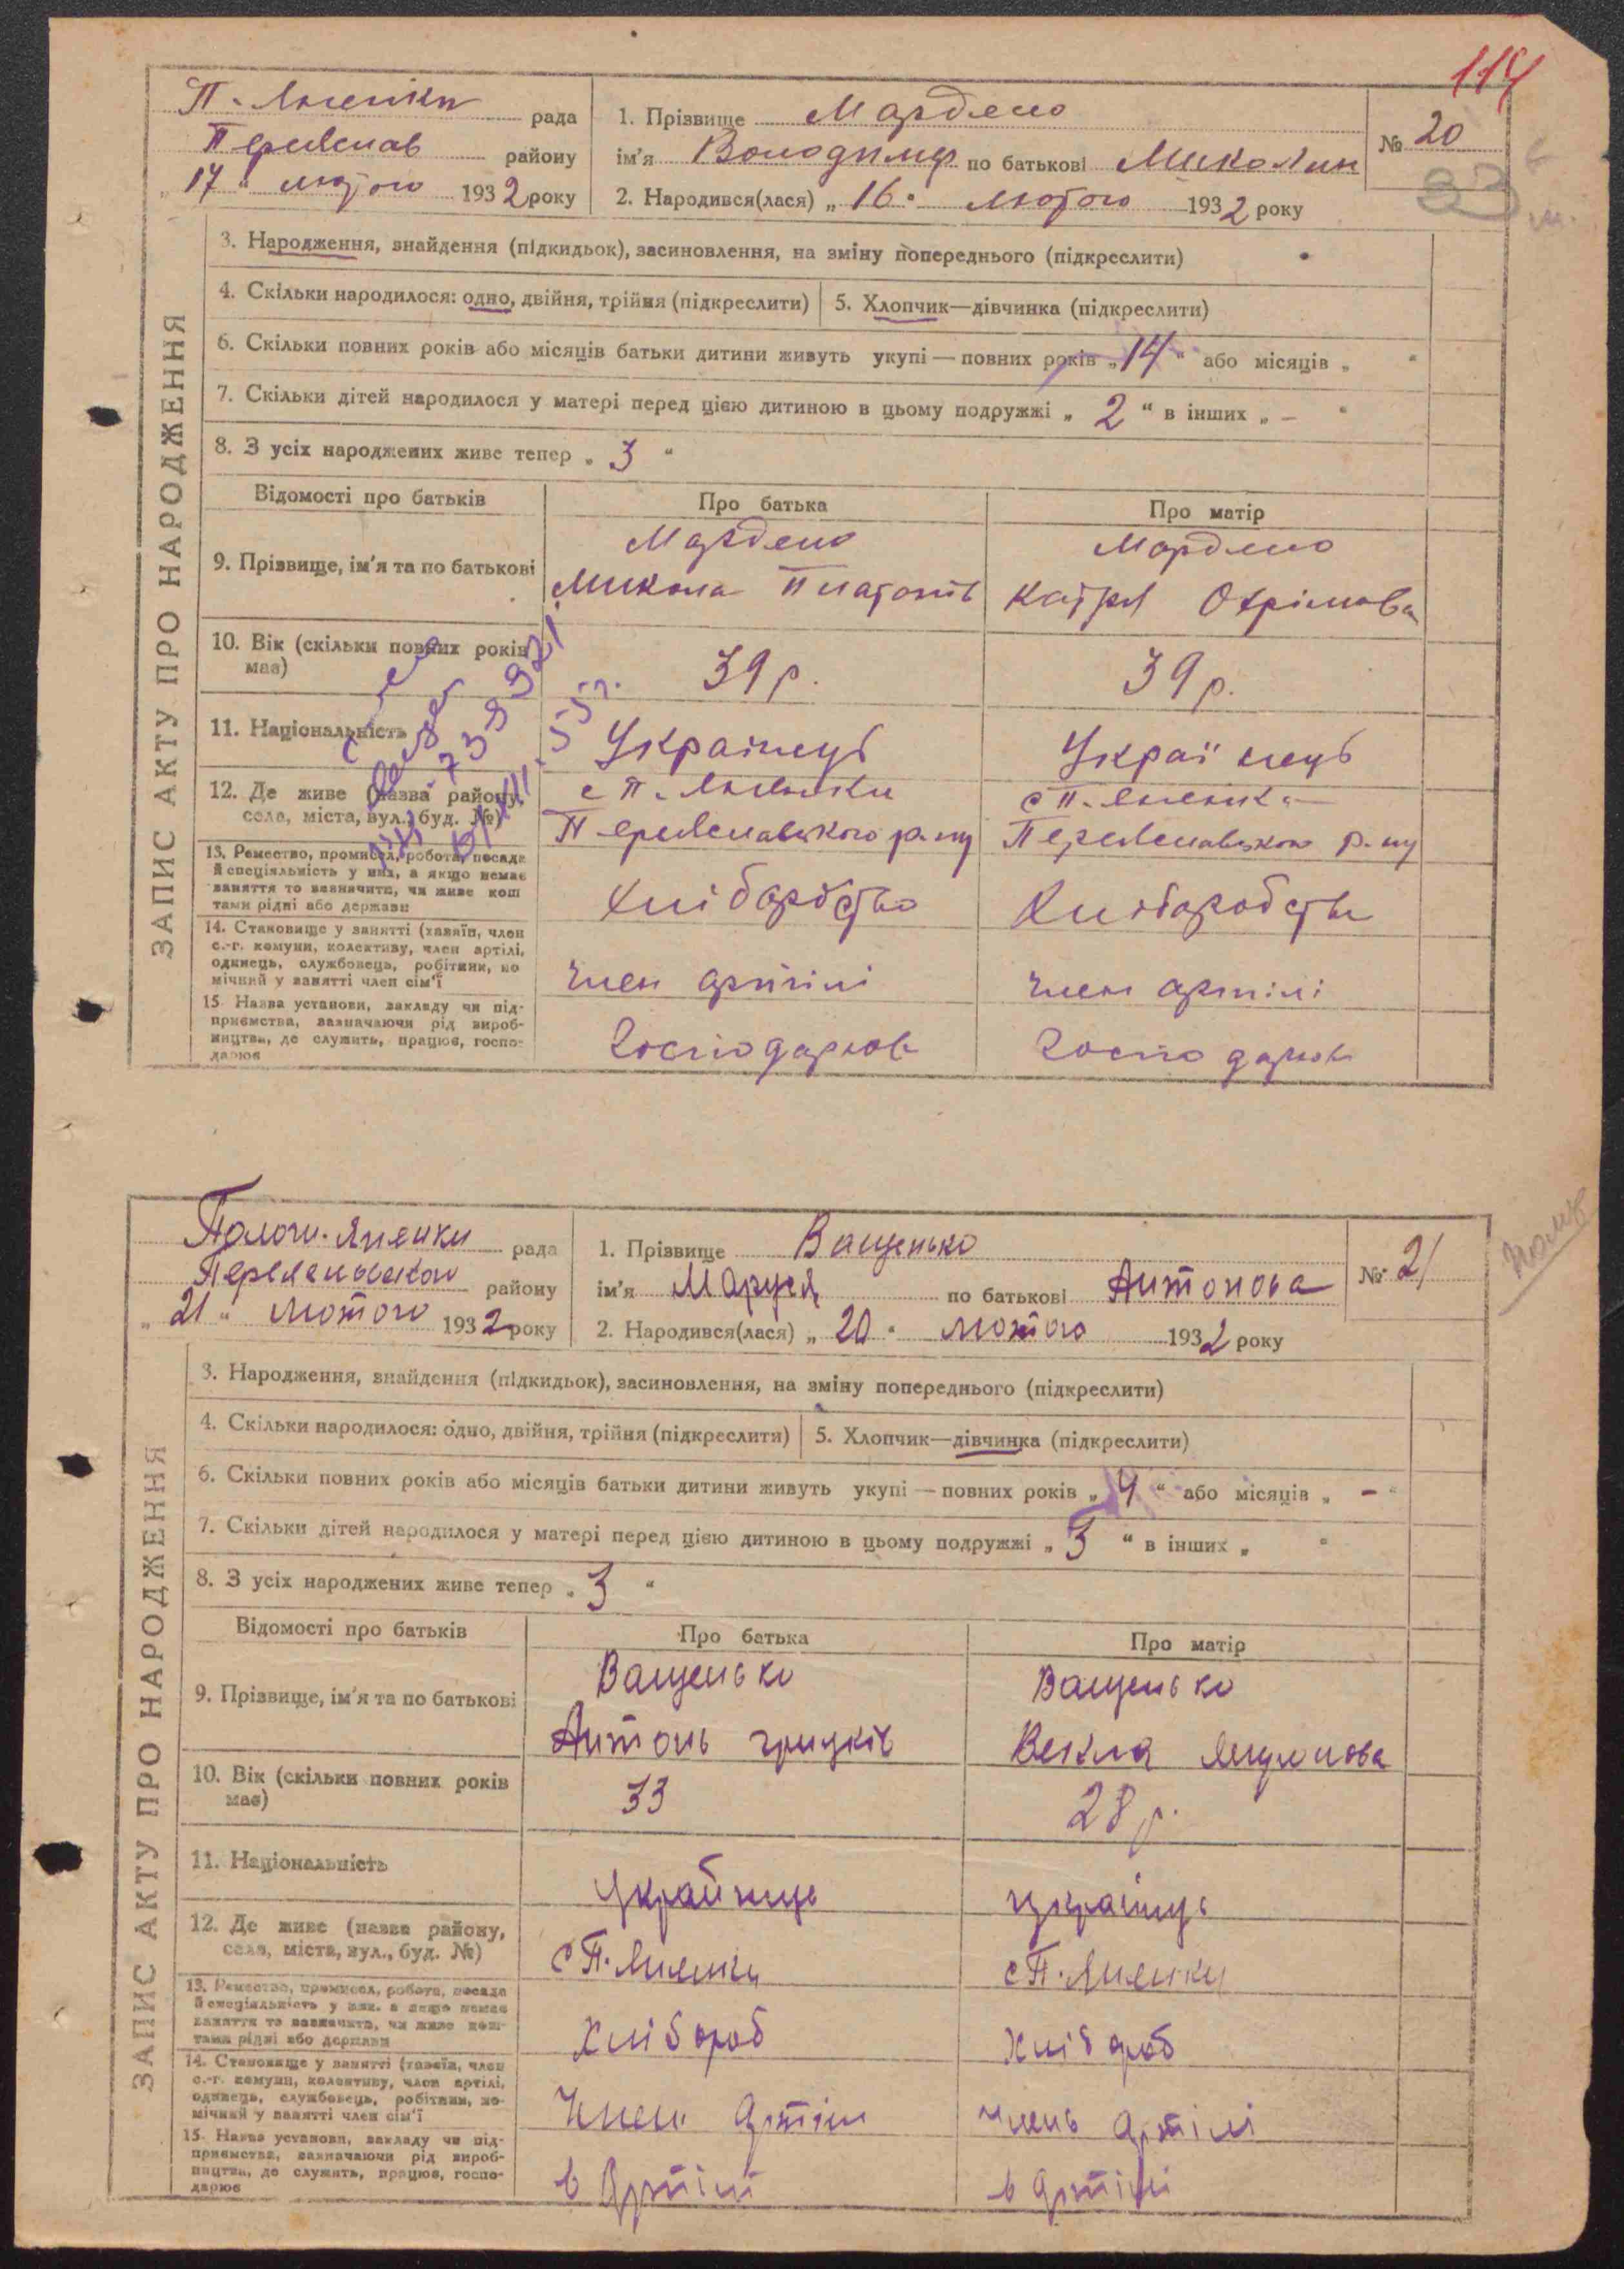 114
П. Яненки рада
Переяслав району
„ 17 “ лютого 1932 року
1. Прізвище
ім'я Володимир по батькові Миколин
2. Народився(лася) „ 16 “ лютого 1932 року
№ 20
33
ЗАПИС АКТУ ПРО НАРОДЖЕННЯ
3. Народження, знайдення (підкидьок), засиновлення, на зміну попереднього (підкреслити)
4. Скільки народилося: одно, двійня, трійня (підкреслити)
5. Хлопчик—дівчинка (підкреслити)
6. Скільки повних років або місяців батьки дитини живуть укупі — повних років „ 14 “ або місяців „ “
7. Скільки дітей народилося у матері перед цією дитиною в цьому подружжі „ 2 “ в інших „ – “
8. З усіх народжених живе тепер „ 3 “
Відомості про батьків
Про батька
Про матір
9. Прізвище, ім'я та по батькові
Микола Платонів
Катря Охрімова
10. Вік (скільки повних років
має)
39 р.
39 р.
11. Національність
Українець
Украї нець
12. Де живе (назва району,
села, міста, вул., буд. №)
с П. Яненки
Переяславського р-ну
с П. Яненки
Переяславського р-ну
13. Ремество, промисел, робота, посада
й спеціяльність у них, а якщо немає
заняття то зазначити, чи живе кош
тами рідні або держави
Хліборобство
14. Становище у занятті (хазяїн, член
с.-г. комуни, колективу, член артілі,
одинець, службовець, робітник, по
мічний у занятті член сім'ї
член артілі
член артілі
15 Назва установи, закладу чи під-
приємства, зазначаючи рід вироб-
ництва, де служить, працює, госпо-
дарює
Полого. Яненки рада
району
„ 21 “ лютого 1932 року
1. Прізвище Ващенько
ім'я Маруся по батькові Антонова
2. Народився(лася) „ 20 “ лютого 1932 року
№ 21
ЗАПИС АКТУ ПРО НАРОДЖЕННЯ
3. Народження, знайдення (підкидьок), засиновлення, на зміну попереднього (підкреслити)
4. Скільки народилося: одно, двійня, трійня (підкреслити)
5. Хлопчик—дівчинка (підкреслити)
6. Скільки повних років або місяців батьки дитини живуть укупі — повних років „ 4 “ або місяців „ – “
7. Скільки дітей народилося у матері перед цією дитиною в цьому подружжі „ 3 “ в інших „ “
8. З усіх народжених живе тепер „ 3 “
Відомості про батьків
Про батька
Про матір
9. Прізвище, ім'я та по батькові
Ващенько
Антонь грицків
Ващенько
Векла
10. Вік (скільки повних років
має)
33
28 р.
11. Національність
українць
12. Де живе (назва району,
села, міста, вул., буд. №)
с П. Яненки
с П. Яненки
13. Ремество, промисел, робота, посада
й спеціяльність у них, а якщо немає
заняття то зазначити, чи живе кош-
тами рідні або держави
Хлібороб
Хлібороб
14. Становище у занятті (хазяїн, член
с.-г. комуни, колективу, член артілі,
одинець, службовець, робітник, по-
мічний у занятті член сім'ї
Член артіли
Члень артілі
15 Назва установи, закладу чи під-
приємства, зазначаючи рід вироб-
ництва, де служить, працює, госпо-
дарює
в Артілі
в артілі